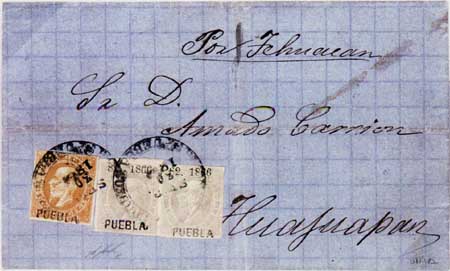 Por Tehuacan
Sr D.
Amado Carrion
Huajuapan
1866 1866
PUEBLA PUEBLA PUEBLA